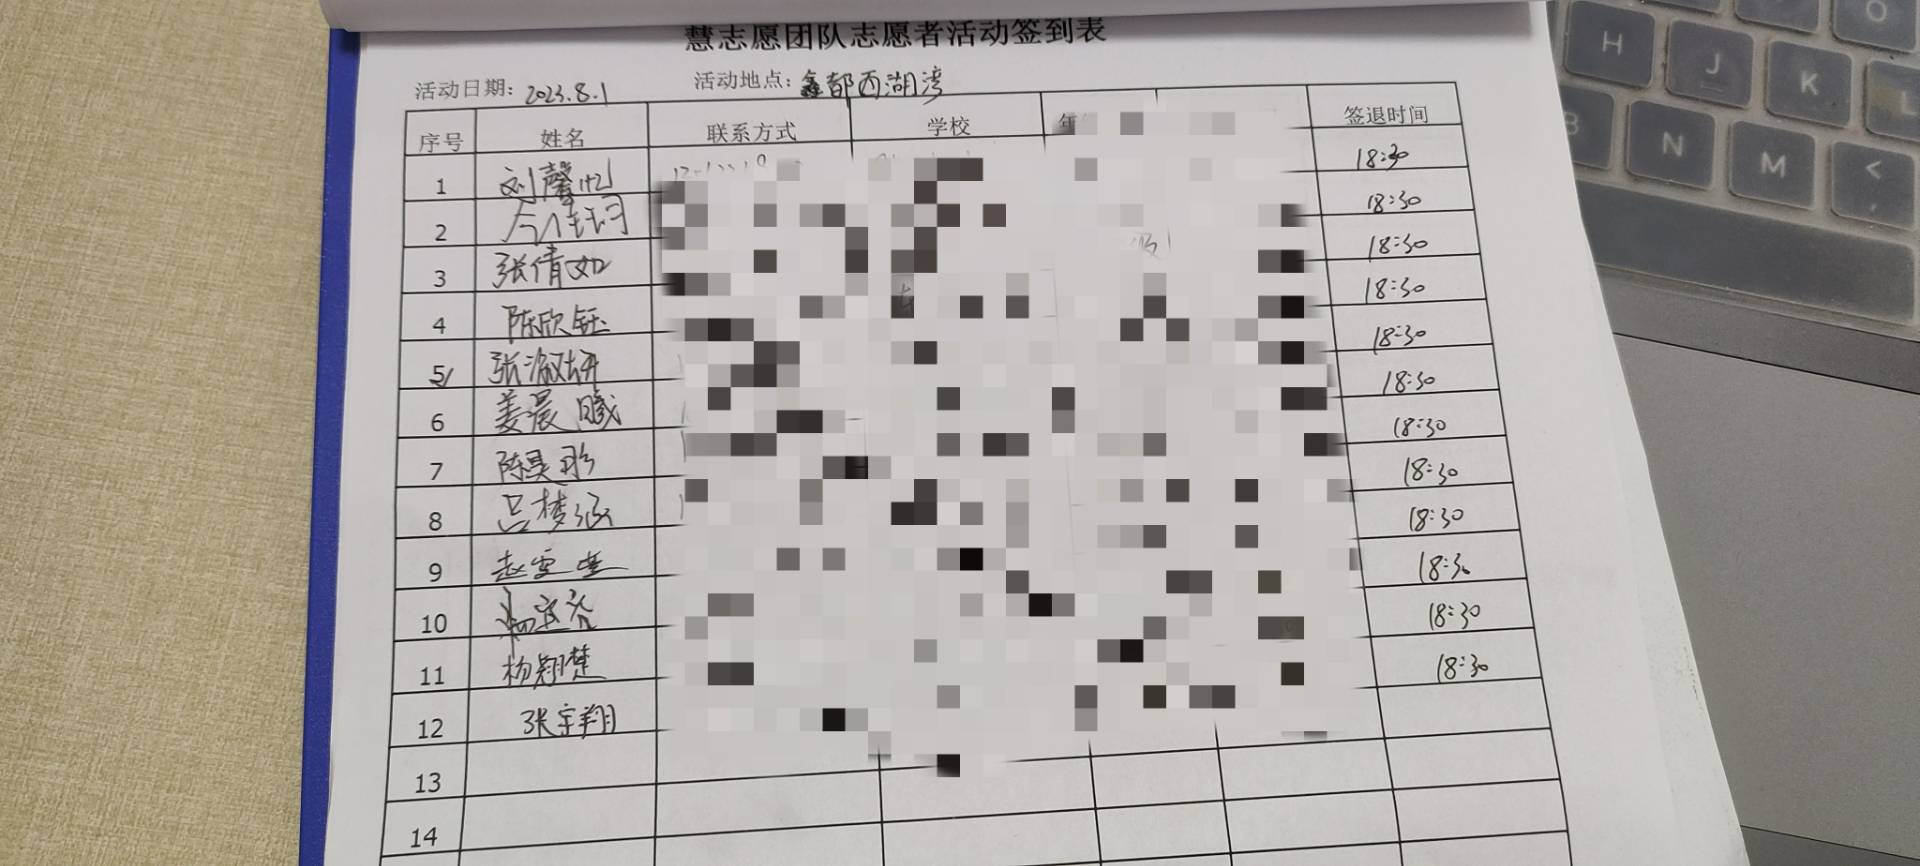 慧志愿团队志愿者活动签到表
活动日期: 2023.8.1 活动地点: 鑫都西湖湾
序号 姓名 联系方式 学校 年 签退时间
1 刘馨忆 18:30
2 18:30
3 张倩如 18:30
4 陈欣钰 18:30
5 张淑妍 18:30
6 姜晨曦 18:30
7 陈昊彤 18:30
8 吕梦涵 18:30
9 赵雯 18:30
10 18:30
11 杨翔楚 18:30
12 张宇翔
13
14
H J K L O
B N M <